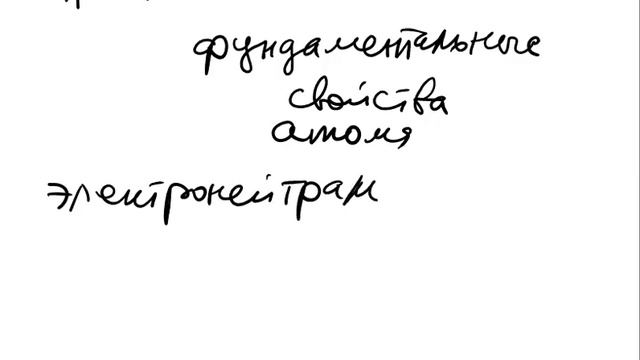 фундаментальные
свойства
атома
электронейтрал